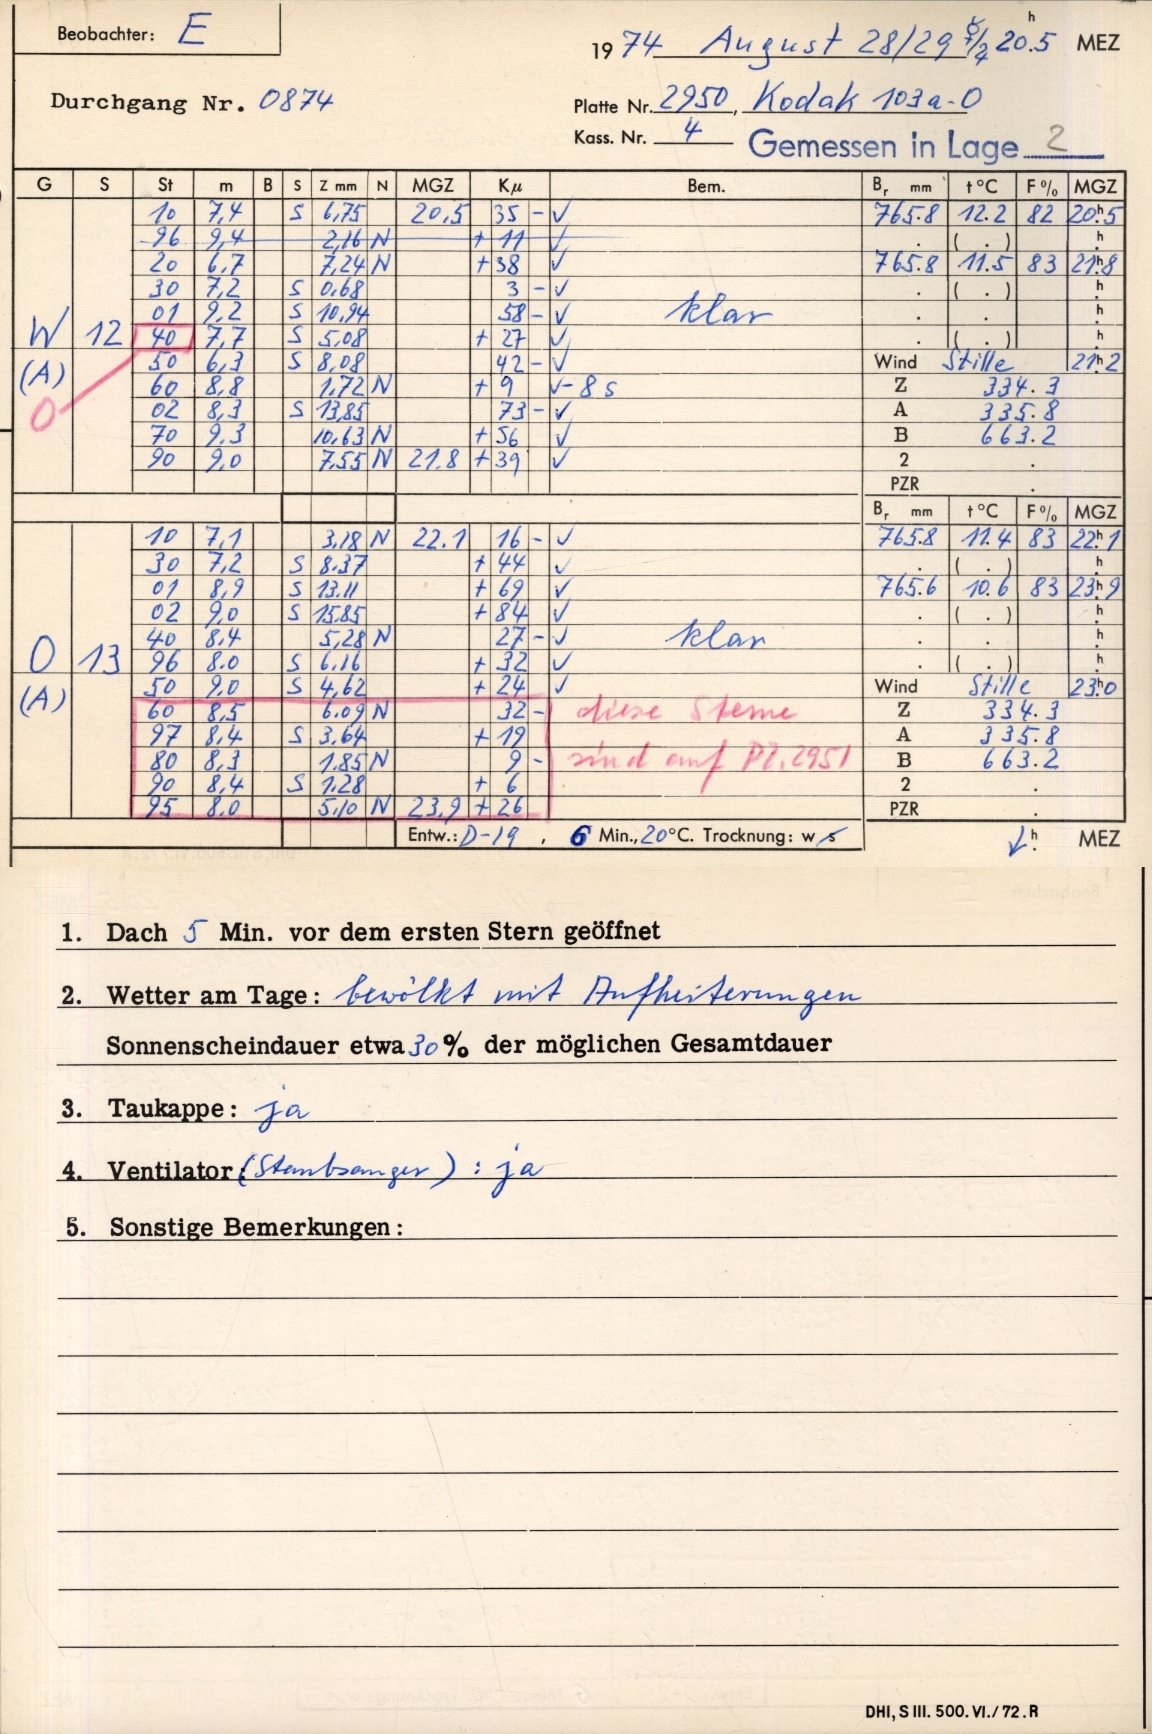 Beobachter: E
1974 August 28/29 20.5 h MEZ
Durchgang Nr. 0874
Platte Nr. 2950, Kodak 103a-O
Kass. Nr. 4 Gemessen in Lage 2
G S St m B S Z mm N MGZ Kμ Bem. Br mm t °C F % MGZ
10 7,4 S 6,75 20,5 35 - ✓ 765.8 12.2 82 20h5
96 9,4 2,16 N + 11 ✓ . ( . ) h
20 6,7 7,24 N + 38 ✓ 765.8 11.5 83 21h8
30 7,2 S 0,68 3 - ✓ . ( . ) h
01 9,2 S 10,94 58 - ✓ klar . . h
W 12 40 7,7 S 5,08 + 27 ✓ . ( . ) h
50 6,3 S 8,08 42 - ✓ Wind Stille 21h2
(A) 60 8,8 1,72 N + 9 ✓ - 8 s Z 334.3
O 02 8,3 S 13,85 73 - ✓ A 335.8
70 9,3 10,63 N + 56 ✓ B 663.2
90 9,0 7,55 N 21.8 + 39 ✓ 2 .
PZR .
Br mm t °C F % MGZ
10 7,1 3,18 N 22.1 16 - ✓ 765.8 11.4 83 22h1
30 7,2 S 8.37 + 44 ✓ . ( . ) h
01 8,9 S 13.11 + 69 ✓ 765.6 10.6 83 23h9
02 9,0 S 15.85 + 84 ✓ . ( . ) h
40 8,4 5,28 N 27 - ✓ klar . . h
O 13 96 8.0 S 6,16 + 32 ✓ . ( . ) h
50 9,0 S 4,62 + 24 ✓ Wind Stille 23h0
(A) 60 8,5 6.09 N 32 - diese Sterne Z 334.3
97 8,4 S 3,64 + 19 A 335.8
80 8,3 1.85 N 9 - sind auf Pl. 2951 B 663.2
90 8,4 S 1.28 + 6 2 .
95 8.0 5,10 N 23,9 + 26 PZR .
Entw.: D-19 , 6 Min., 20 °C. Trocknung: w s h. MEZ
1. Dach 5 Min. vor dem ersten Stern geöffnet
2. Wetter am Tage: bewölkt mit Aufheiterungen
Sonnenscheindauer etwa 30 % der möglichen Gesamtdauer
3. Taukappe: ja
4. Ventilator: (Staubsauger) : ja
5. Sonstige Bemerkungen:
DHI, S III. 500. VI./72. R